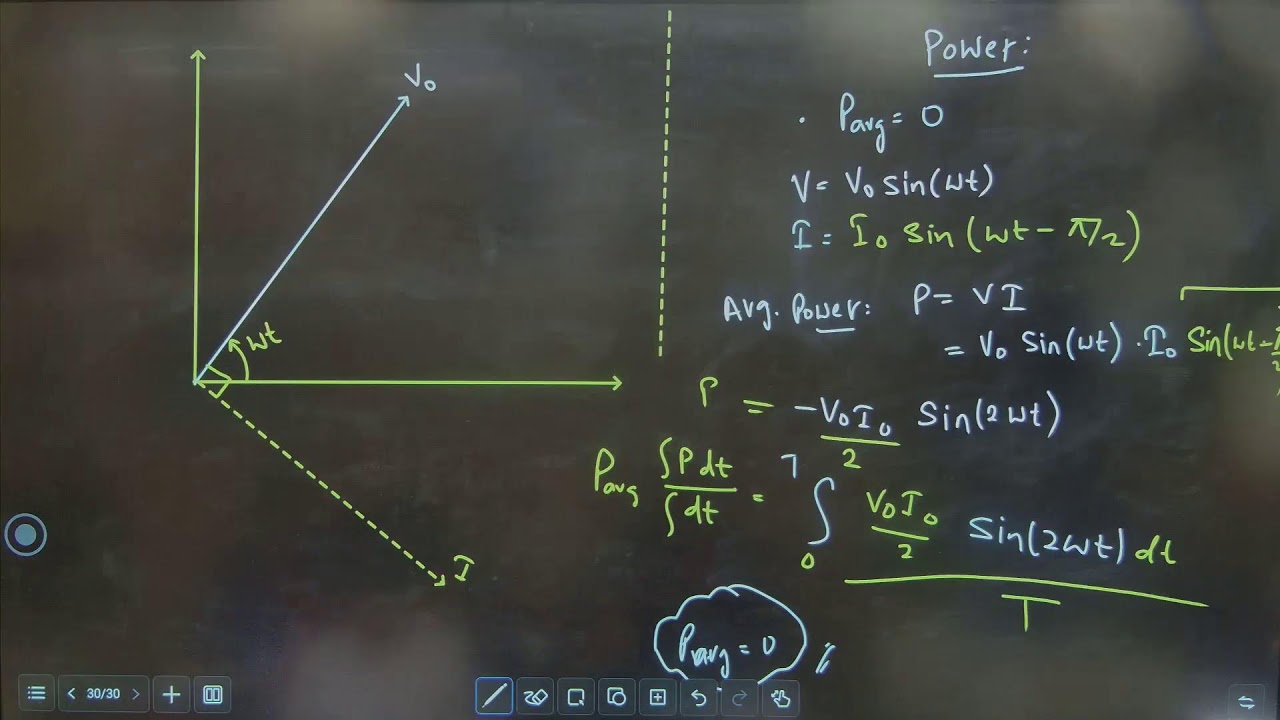 V₀
wt
I
Power:
· Pavg = 0
V = V₀ sin(wt)
I = I₀ sin(wt - π/2)
Avg. Power: P = VI
= V₀ sin(wt) · I₀ Sin(wt - π/2
P = -V₀I₀/2 Sin(2wt)
Pavg ∫Pdt/∫dt = ∫₀ᵀ V₀I₀/2 Sin(2wt) dt / T
Pavg = 0 //
30/30